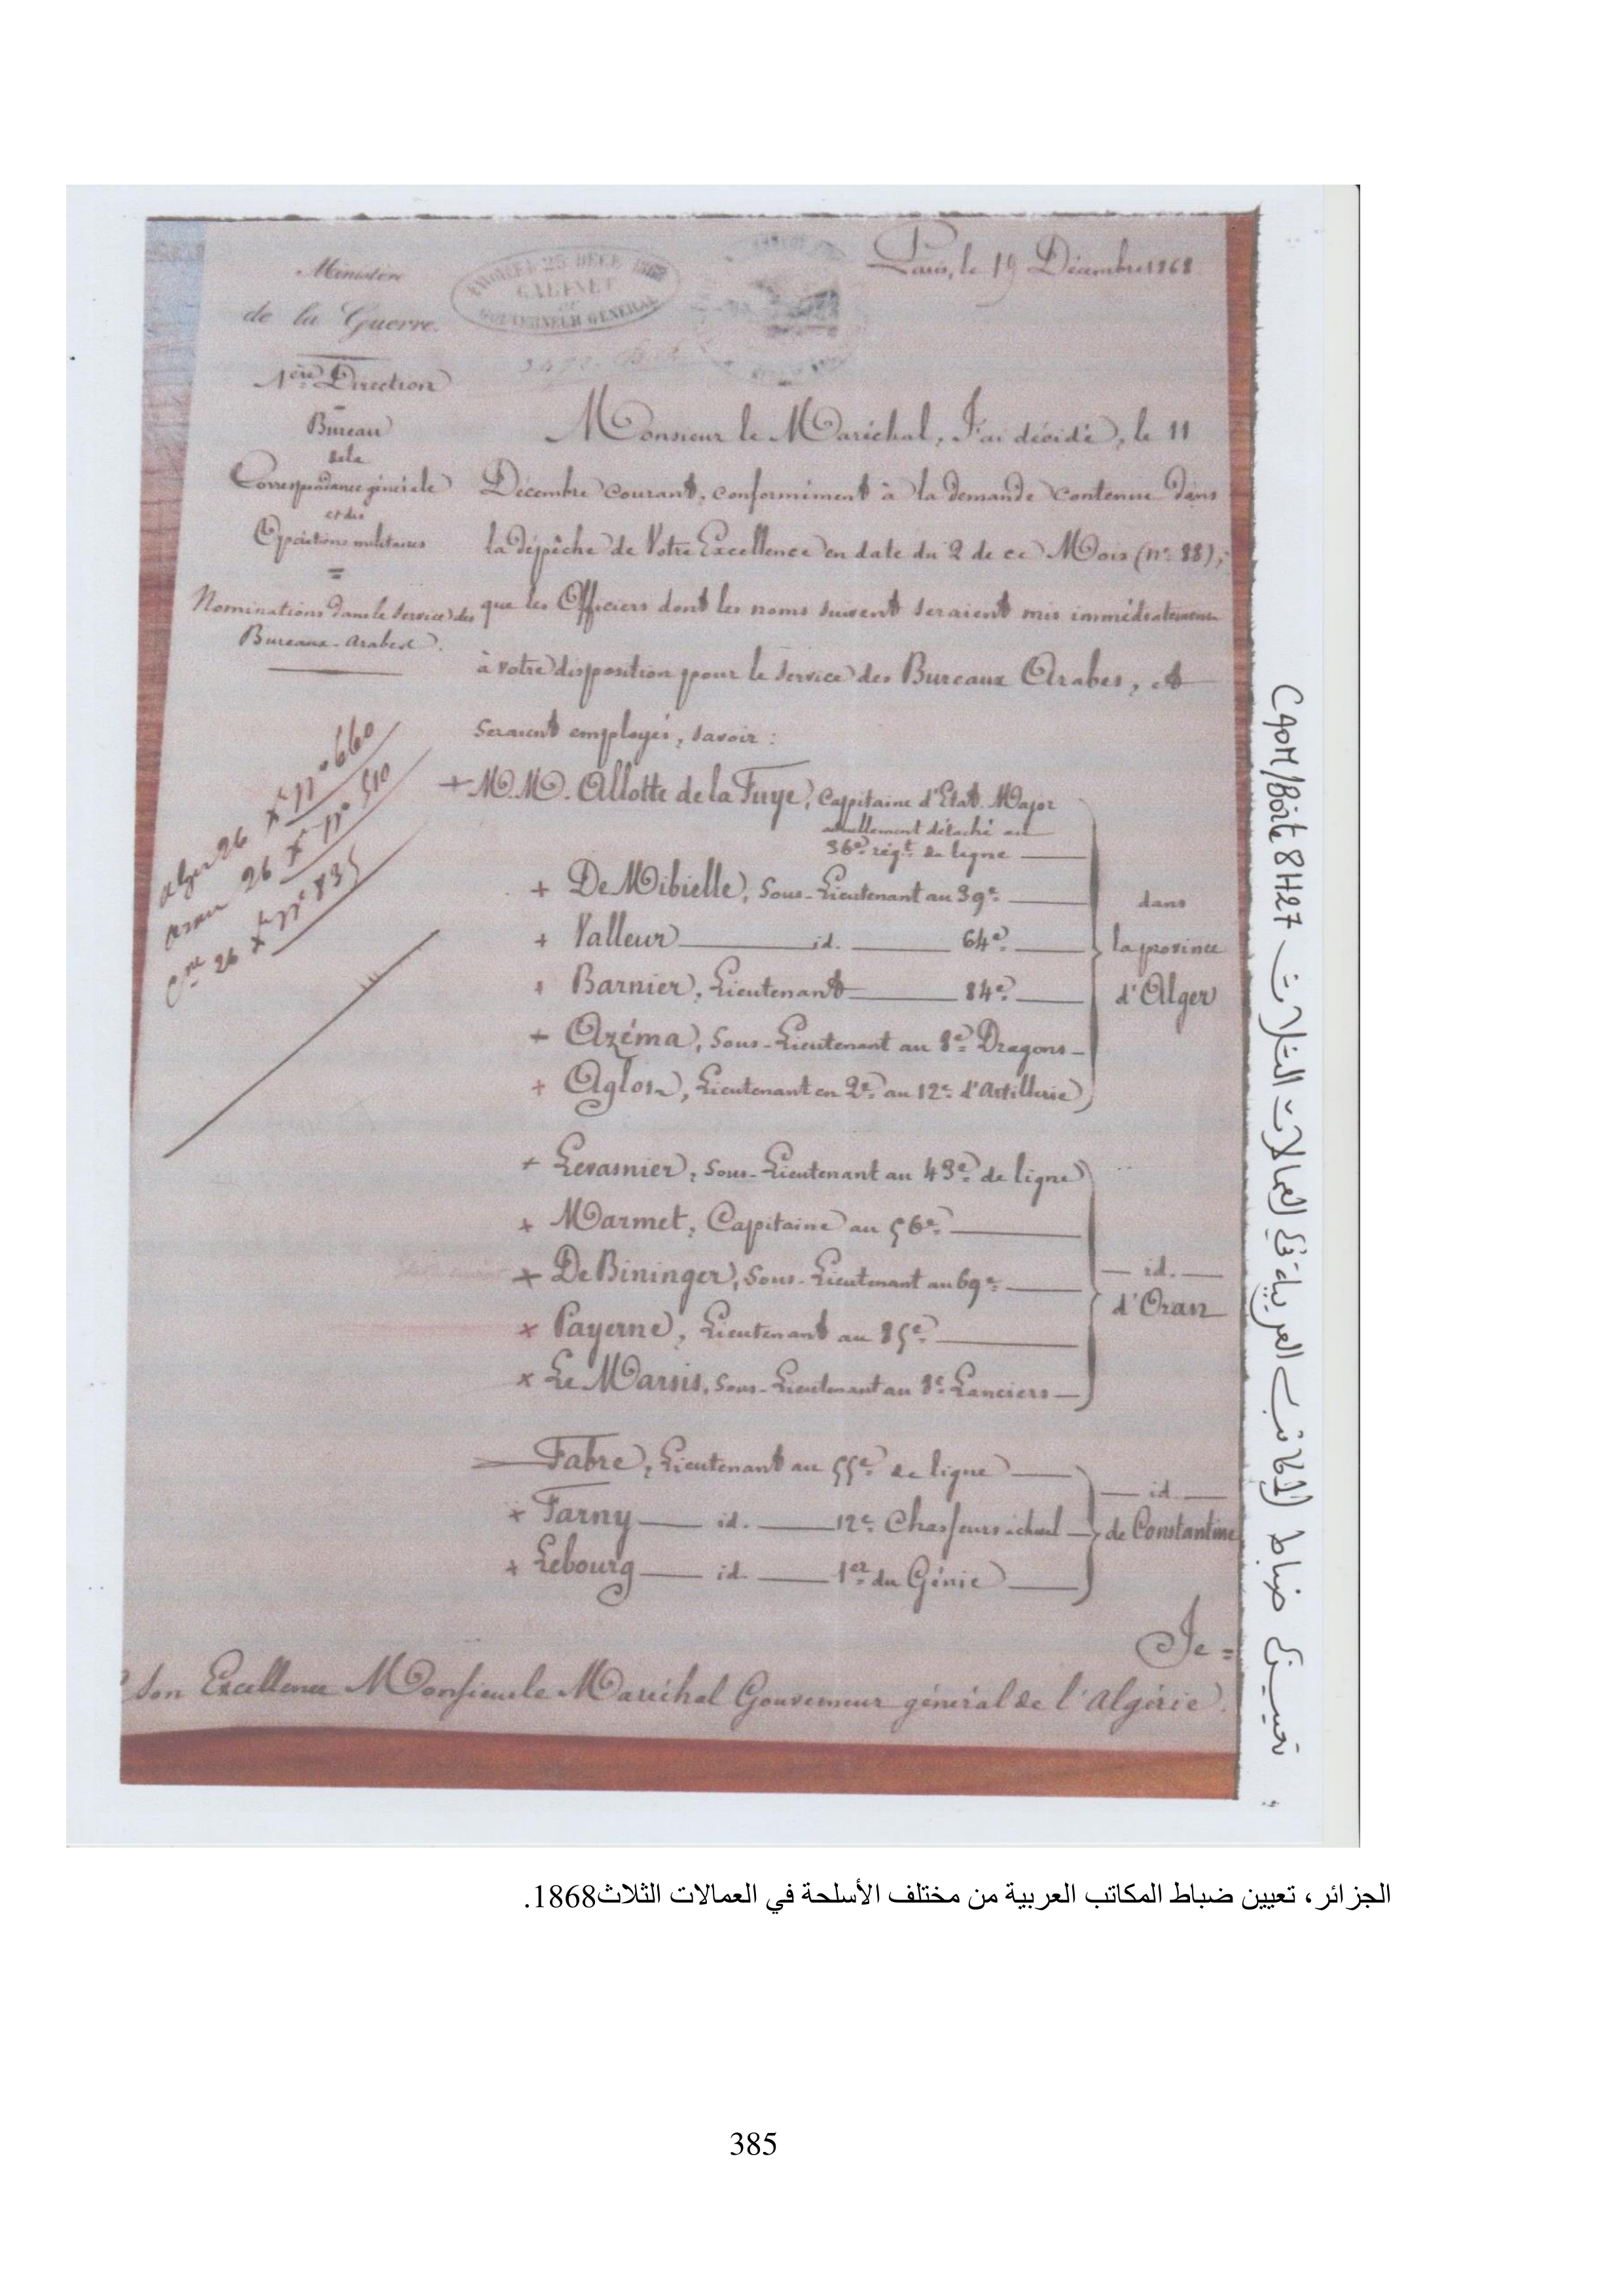 Paris, le 19 Décembre 1868
Ministère
de la Guerre.
ENTRÉE 25 DECE 1868
CABINET
GOUVERNEUR GENERAL
1ère Direction
Bureau
de la
Correspondance générale
et des
Opérations militaires
=
Nominations dans le Service des
Bureaux-Arabes.
Monsieur le Maréchal, J'ai décidé, le 11
Décembre courant, conformément à la demande contenue dans
la dépêche de Votre Excellence en date du 2 de ce Mois (n° 88),
que les Officiers dont les noms suivent seraient mis immédiatement
à votre disposition pour le Service des Bureaux Arabes, et
seraient employés, savoir :
alger 26 Xbre n° 660
oran 26 Xbre n° 510
Cne 26 Xbre n° 835
+ M.M. Allotte de la Fuye, Capitaine d'Etat-Major
actuellement détaché au
36e régt de ligne
+ De Mibielle, Sous-Lieutenant au 39e
+ Valleur id. 64e
+ Barnier, Lieutenant 84e
+ Azéma, Sous-Lieutenant au 8e Dragons
+ Aglos, Lieutenant en 2e au 12e d'Artillerie
dans
la province
d'Alger
+ Levasnier, Sous-Lieutenant au 43e de ligne
+ Marmet, Capitaine au 56e
+ De Bininger, Sous-Lieutenant au 69e
x Payerne, Lieutenant au 85e
x Le Marsis, Sous-Lieutenant au 8e Lanciers
id.
d'Oran
Fabre, Lieutenant au 55e de ligne
x Farny id. 12e Chasseurs à cheval
+ Lebourg id. 1er du Génie
id.
de Constantine
Je =
Son Excellence Monsieur le Maréchal Gouverneur général de l'Algérie.
تعيين ضباط المكاتب العربية في العمالات الثلاث CAOM/Boîte 8H27
الجزائر، تعيين ضباط المكاتب العربية من مختلف الأسلحة في العمالات الثلاث1868.
385